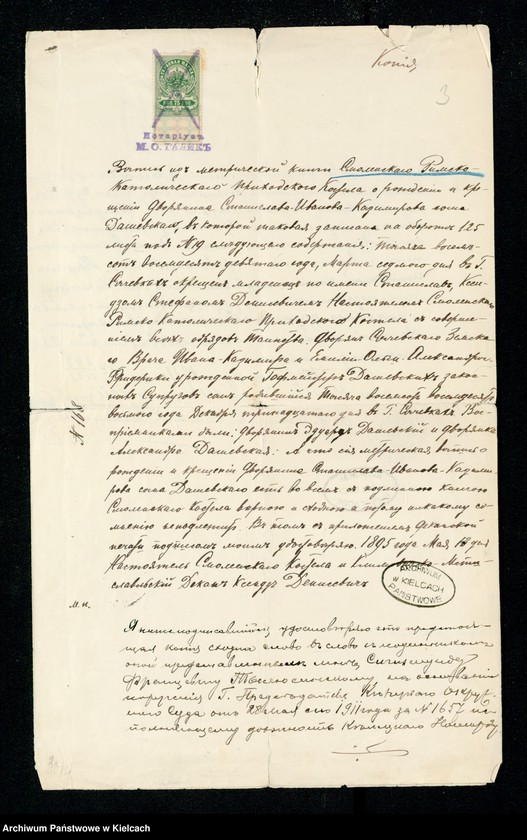 Копія
3
Нотаріусъ
М. О. ГЛЯКЪ
Выпись изъ метрической книги Смоленскаго Римско-
Католическаго Приходскаго Костела о рожденіи и кре-
щеніи Дворянина Станислава-Иванова-Казимирова сына
Дашевскаго, въ которой таковая записана на оборотѣ 125
листа подъ N19 слѣдующаго содержанія: Тысяча восемь-
сотъ восемьдесятъ девятаго года, Марта седьмого дня въ Г.
Сычевкахъ окрещенъ младенецъ по имени Станиславъ, Ксен-
дзомъ Стефаномъ Денисевичемъ Настоятелемъ Смоленскаго
Римско Католическаго Приходскаго Костела съ соверше-
ніемъ всѣхъ обрядовъ Таинства. Дворянъ Сычевскаго Земска-
го Врача Ивана Казимира и Ольги Александры
Фридерики урожденной Дашевскихъ закон-
ныхъ Супруговъ сынъ, родившійся Тысяча восемьсотъ восемьдесятъ
восьмого года Декабря тринадцатаго дня въ Г. Сычевкахъ Вос-
пріемниками были: дворянинъ Эдуардъ Дашевскій и дворянка
Александра Дашевская. А что сія метрическая выпись о
рожденіи и крещеніи Дворянина Станислава-Иванова-Казими-
рова сына Дашевскаго есть во всемъ съ подлинною книгою
Смоленскаго Костела вѣрною и сходною и потому никакому со-
мнѣнію не подлежитъ. Въ томъ съ приложеніемъ
печати подписомъ моимъ удостовѣряю. 1895 года Мая дня
Настоятель Смоленскаго Костела и Мсти-
славльскій Деканъ Ксендзъ Денисевичъ
N 168
М. п.
ARCHIWUM
w KIELCACH
PAŃSTWOWE
Я нижеподписавшійся удостовѣряю что предстоя-
щая копія сходна слово въ слово съ подлинникомъ
оной представленнымъ мнѣ Сигизмундомъ
Францевичемъ на основаніи
порученія Г. Предсѣдателя Кѣлецкаго Окруж-
наго Суда отъ 28 мая сего 1911 года за N 1657 ис-
полняющему должность Кѣлецкаго Нотаріуса
Archiwum Państwowe w Kielcach